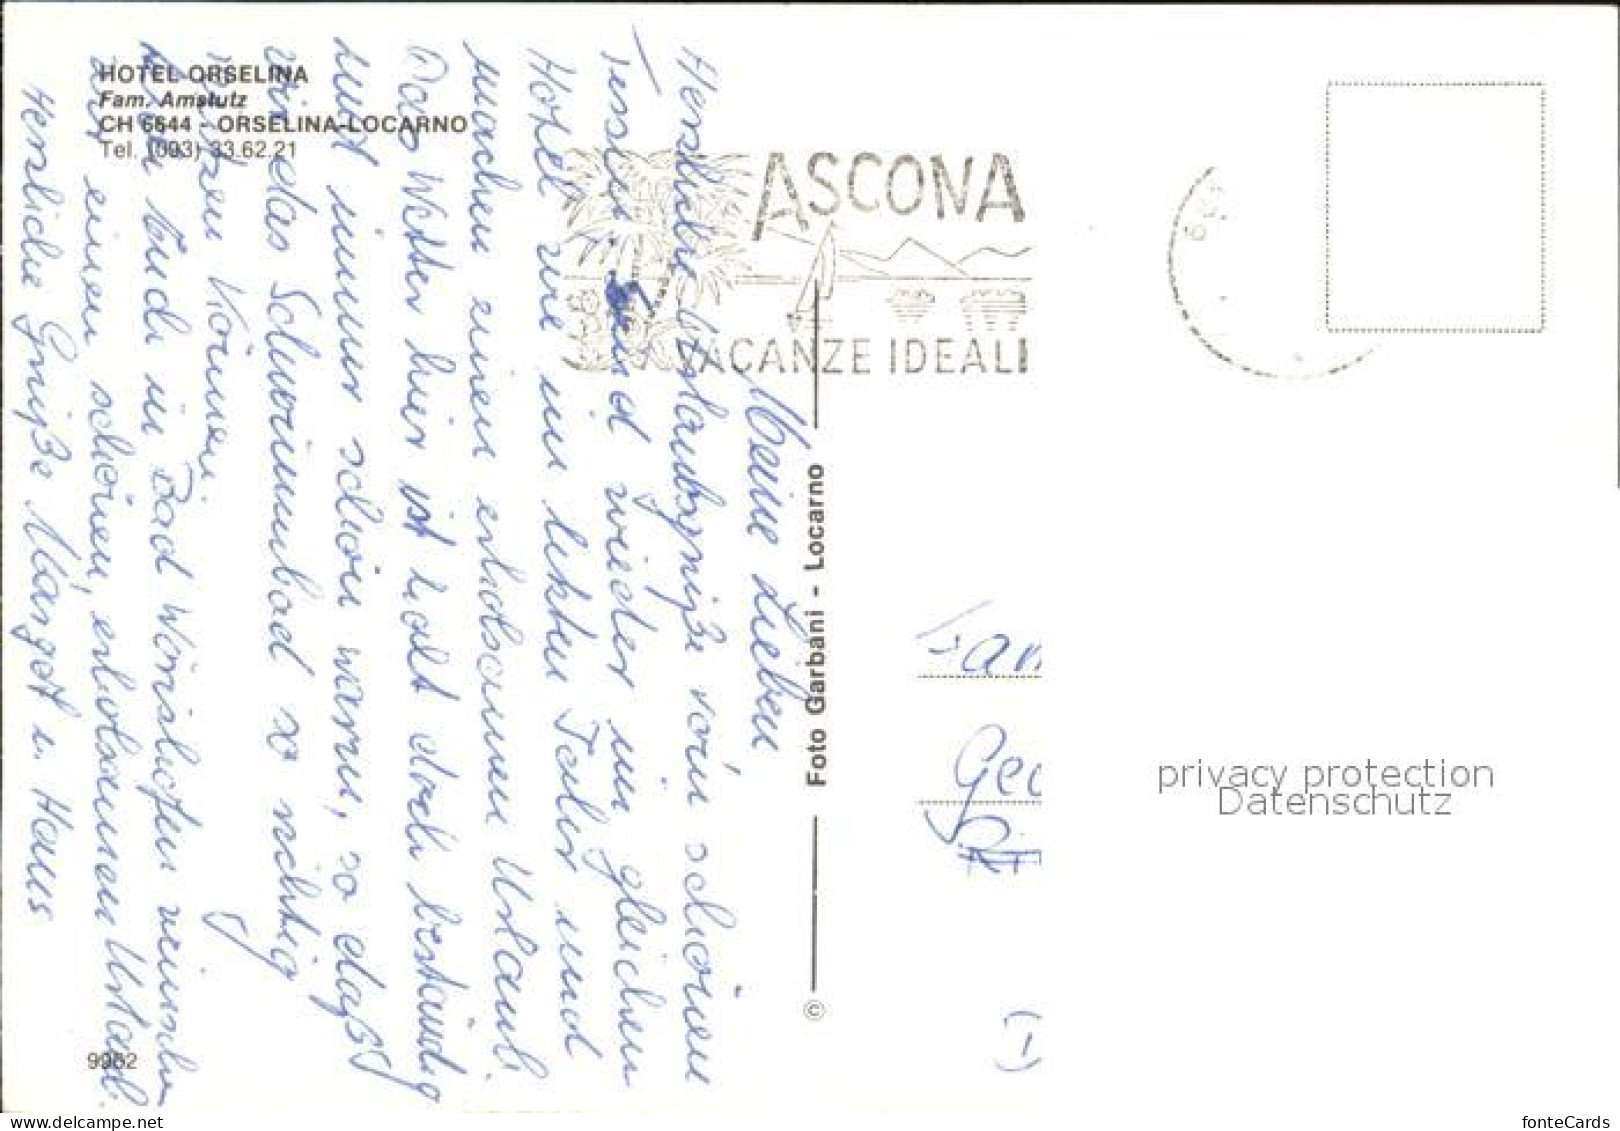 HOTEL ORSELINA
Fam. Amstutz
CH 6644 - ORSELINA-LOCARNO
Tel. (093) 33.62.21
ASCONA
VACANZE IDEALI
Meine Lieben,
Herzliche Urlaubsgrüße vom schönen
Tessin. Sind wieder im gleichen
Hotel wie im letzten Jahr und
machen einen erholsamen Urlaub.
Das Wetter hier ist halt doch beständig
und immer schön warm, so daß
wir das Schwimmbad so richtig
nützen können.
Auch in Bad Wörishofen wünschen
wir einen schönen, erholsamen Urlaub.
Herzliche Grüße Margot u. Hans
Foto Garbani - Locarno
©
9962
Fam
Geo
privacy protection
Datenschutz
fonteCards